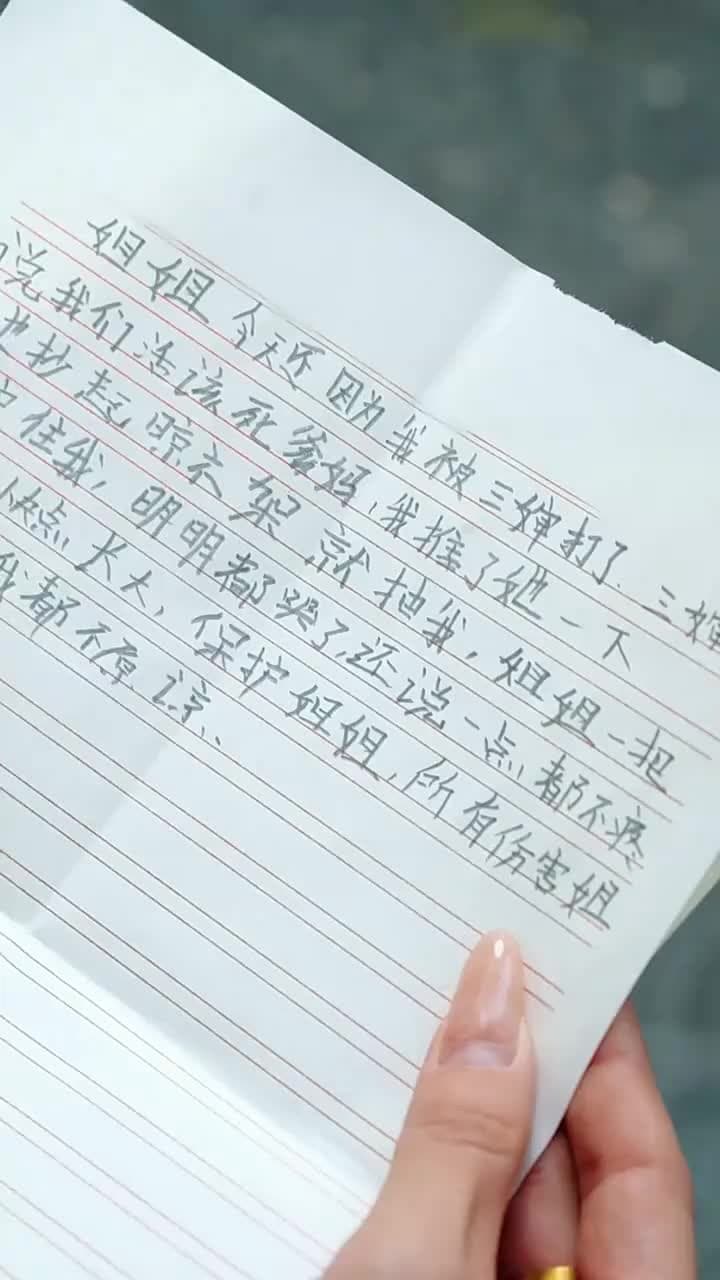 姐姐 今天还因为我被三婶打了、三婶
说我们活该死爹妈,我推了她一下
抄起晾衣架就抽我,姐姐一把
住我,明明都哭了,还说一点都不疼
快点长大,保护姐姐,所有伤害姐
我都不原谅、